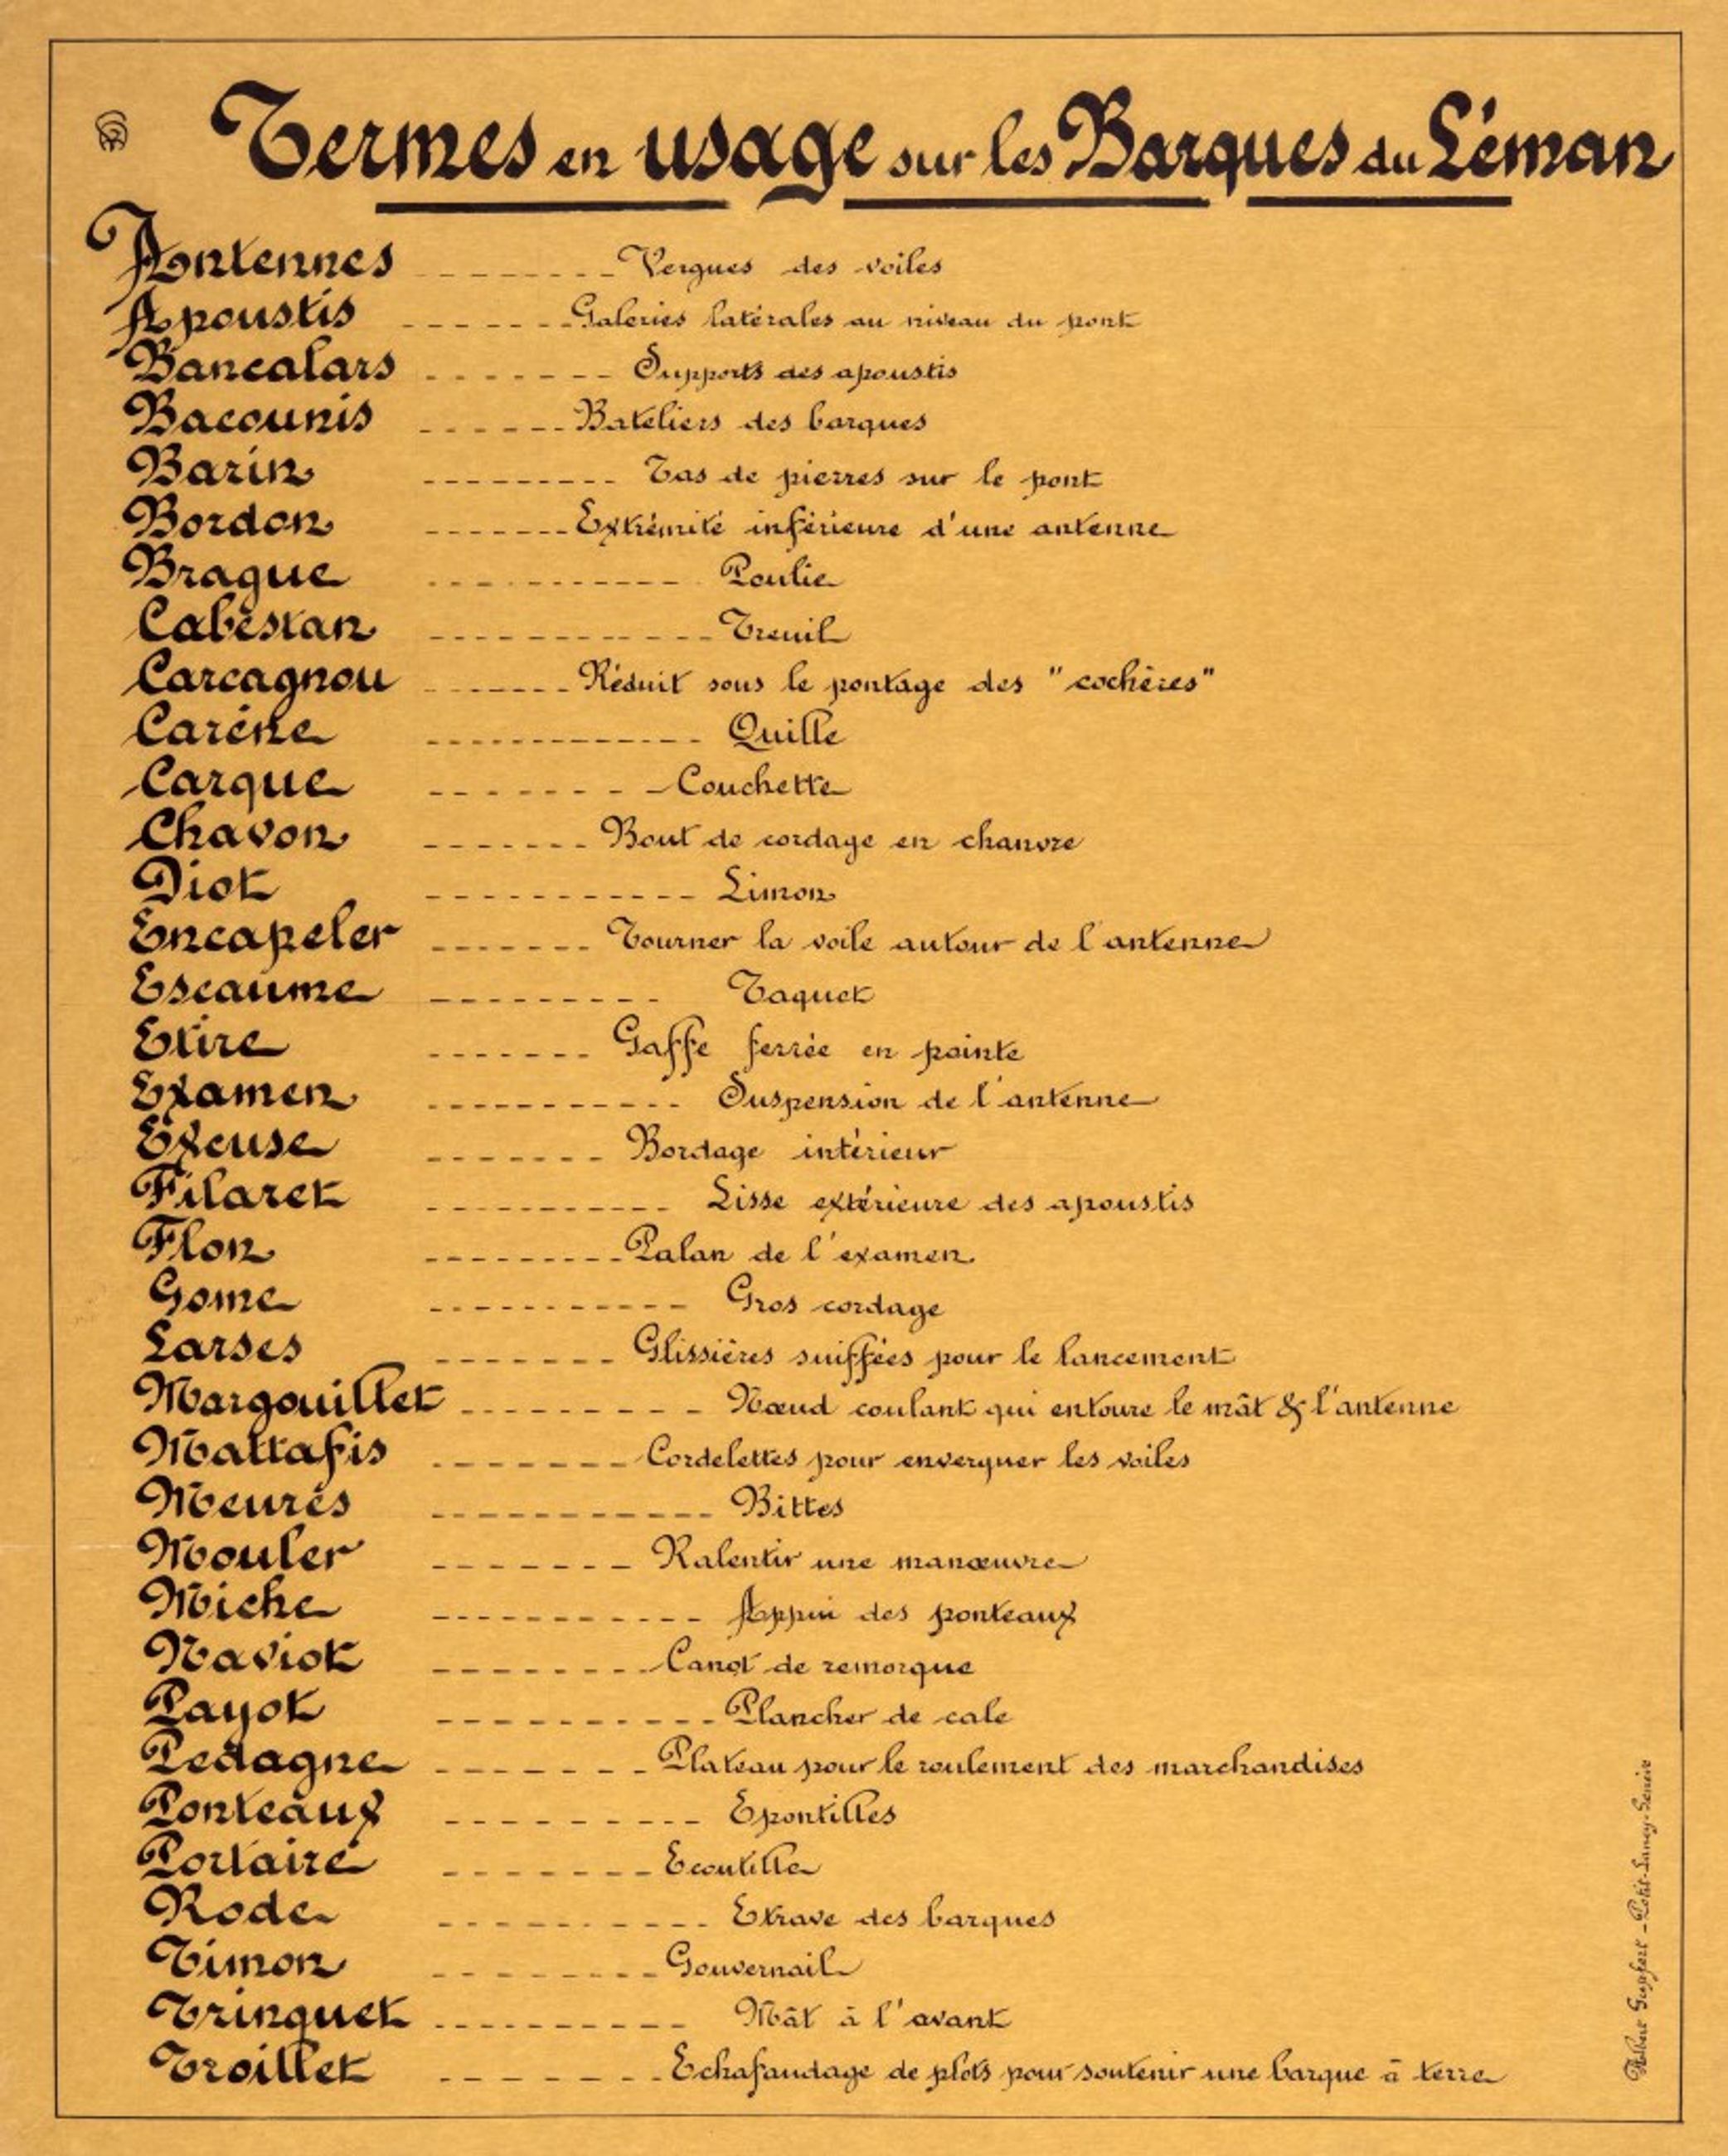 Termes en usage sur les Barques du Léman
Antennes --------- Vergues des voiles
Apoustis ------- Galeries latérales au niveau du pont
Bancalars ------- Supports des apoustis
Bacounis ------ Bateliers des barques
Barin --------- Tas de pierres sur le pont
Bordon ------- Extrémité inférieure d'une antenne
Brague ----------- Poulie
Cabestan ------------ Treuil
Carcagnou ------- Réduit sous le pontage des "cochères"
Carène ------------- Quille
Carque -------- Couchette
Chavon ------- Bout de cordage en chanvre
Diot ----------- Limon
Encapeler ------- Tourner la voile autour de l'antenne
Escaume --------- Taquet
Etire ------- Gaffe ferrée en pointe
Examen ----------- Suspension de l'antenne
Excuse ------- Bordage intérieur
Filaret ----------- Lisse extérieure des apoustis
Flon --------- Palan de l'examen
Gome ----------- Gros cordage
Larses ------- Glissières suiffées pour le lancement
Margouillet --------- Nœud coulant qui entoure le mât & l'antenne
Mattafis ------- Cordelettes pour enverguer les voiles
Meurés ----------- Bittes
Mouler ------- Ralentir une manœuvre
Miche ----------- Appui des ponteaux
Naviot --------- Canot de remorque
Payot ---------- Plancher de cale
Pedagne ------- Plateau pour le roulement des marchandises
Ponteaux ---------- Epontilles
Portaire ------- Ecoutille
Rode ----------- Etrave des barques
Timon -------- Gouvernail
Trinquet ---------- Mât à l'avant
Troillet ------- Echafaudage de plots pour soutenir une barque à terre
- Petit-Lancy-Genève